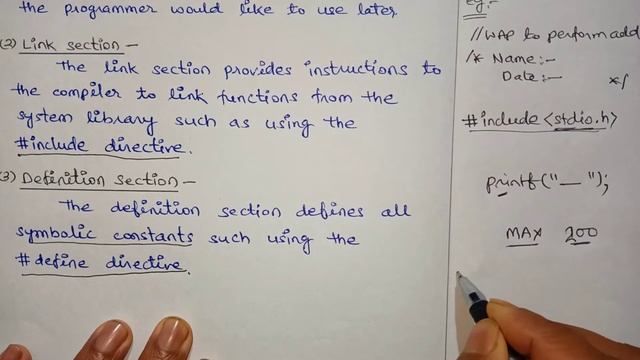 the programmer would like to use later
(2) Link section -
The link section provides instructions to
the compiler to link functions from the
system library such as using the
#include directive.
(3) Definition section -
The definition section defines all
symbolic constants such using the
#define directive.
eg:-
//WAP to perform add
/* Name:-
Date:- */
#include <stdio.h>
printf("—");
MAX 200